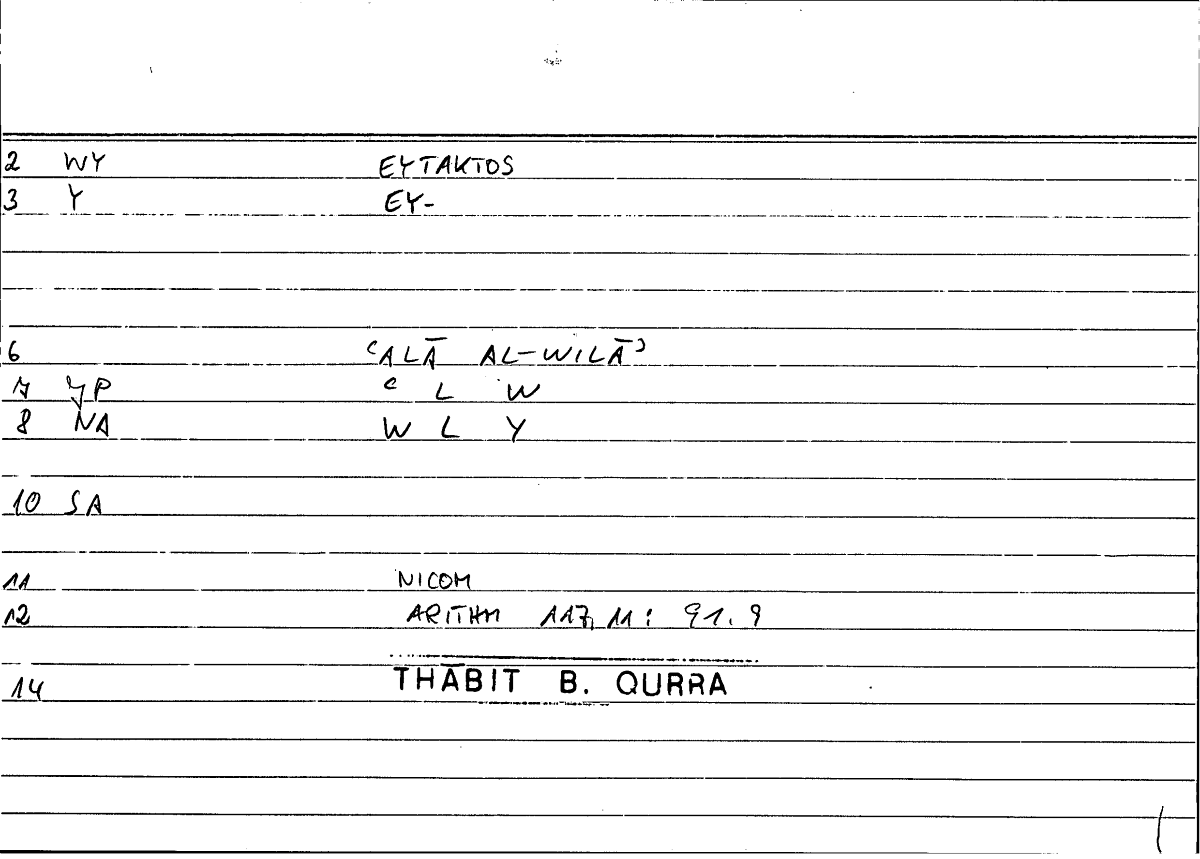 2 WY EYTAKTOS
3 Y EY-
6 ʿALĀ AL-WILĀʾ
7 YP ʿ L W
8 NA W L Y
10 SA
11 NICOM
12 ARITHM 117,11: 91.9
14 THĀBIT B. QURRA